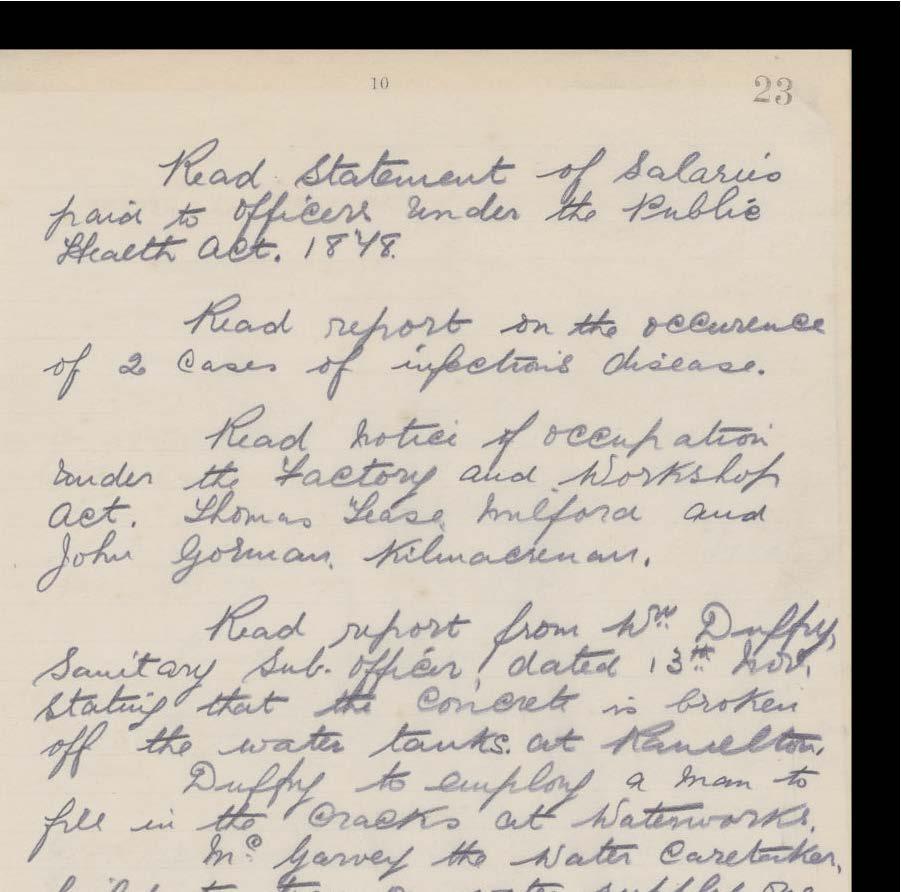 10
23
Read Statement of Salaries
paid to Officers under the Public
Health Act. 1878.
Read report on the occurence
of 2 Cases of infectious disease.
Read Notice of occupation
under the Factory and Workshop
Act. Thomas Milford and
John Gorman. Kilmacrenan.
Read report from Wm. Duffy,
Sanitary Sub. Officer, dated 13th Nov.
stating that the Concrete is broken
off the water tanks. at Ramelton.
Duffy to employ a Man to
fill in the Cracks at Waterworks.
Mc. Garvey the Water Caretaker,